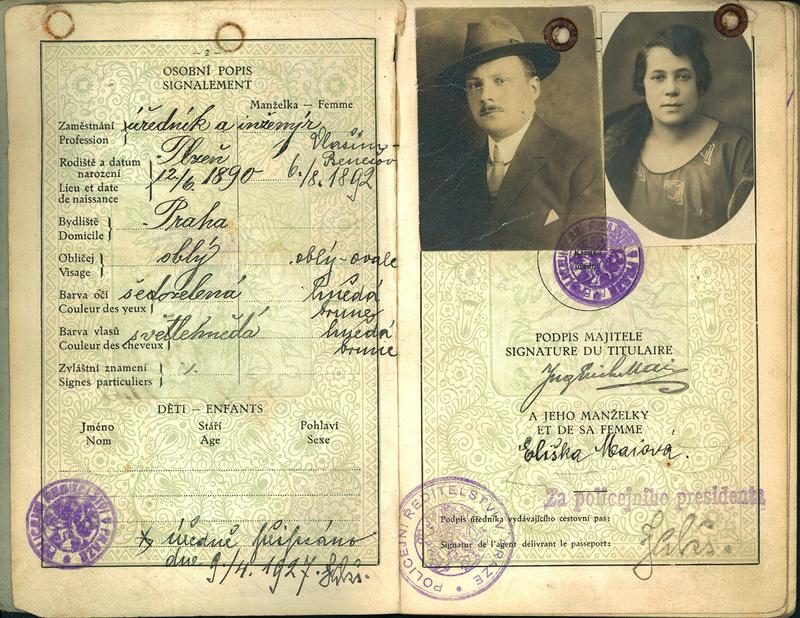 — 2 —
OSOBNÍ POPIS
SIGNALEMENT
Manželka — Femme
Zaměstnání
Profession
úředník a inženýr
Rodiště a datum
narození
Lieu et date
de naissance
Plzeň
12/6. 1890
Vlašim-
Benešov
6./8. 1892
Bydliště
Domicile
Praha
Obličej
Visage
oblý
oblý-ovale
Barva očí
Couleur des yeux
šedozelená
hnědá
brunes
Barva vlasů
Couleur des cheveux
světlehnědá
hnědá
brune
Zvláštní znamení
Signes particuliers
DĚTI — ENFANTS
Jméno Stáří Pohlaví
Nom Age Sexe
× úředně připsáno
dne 9/4. 1927.
PODPIS MAJITELE
SIGNATURE DU TITULAIRE
A JEHO MANŽELKY
ET DE SA FEMME
Eliška Maiová.
Za policejního presidenta
Podpis úředníka vydávajícího cestovní pas:
Signatur de l'agent délivrant le passeport:
POLICEJNÍ ŘEDITELSTVÍ V PRAZE